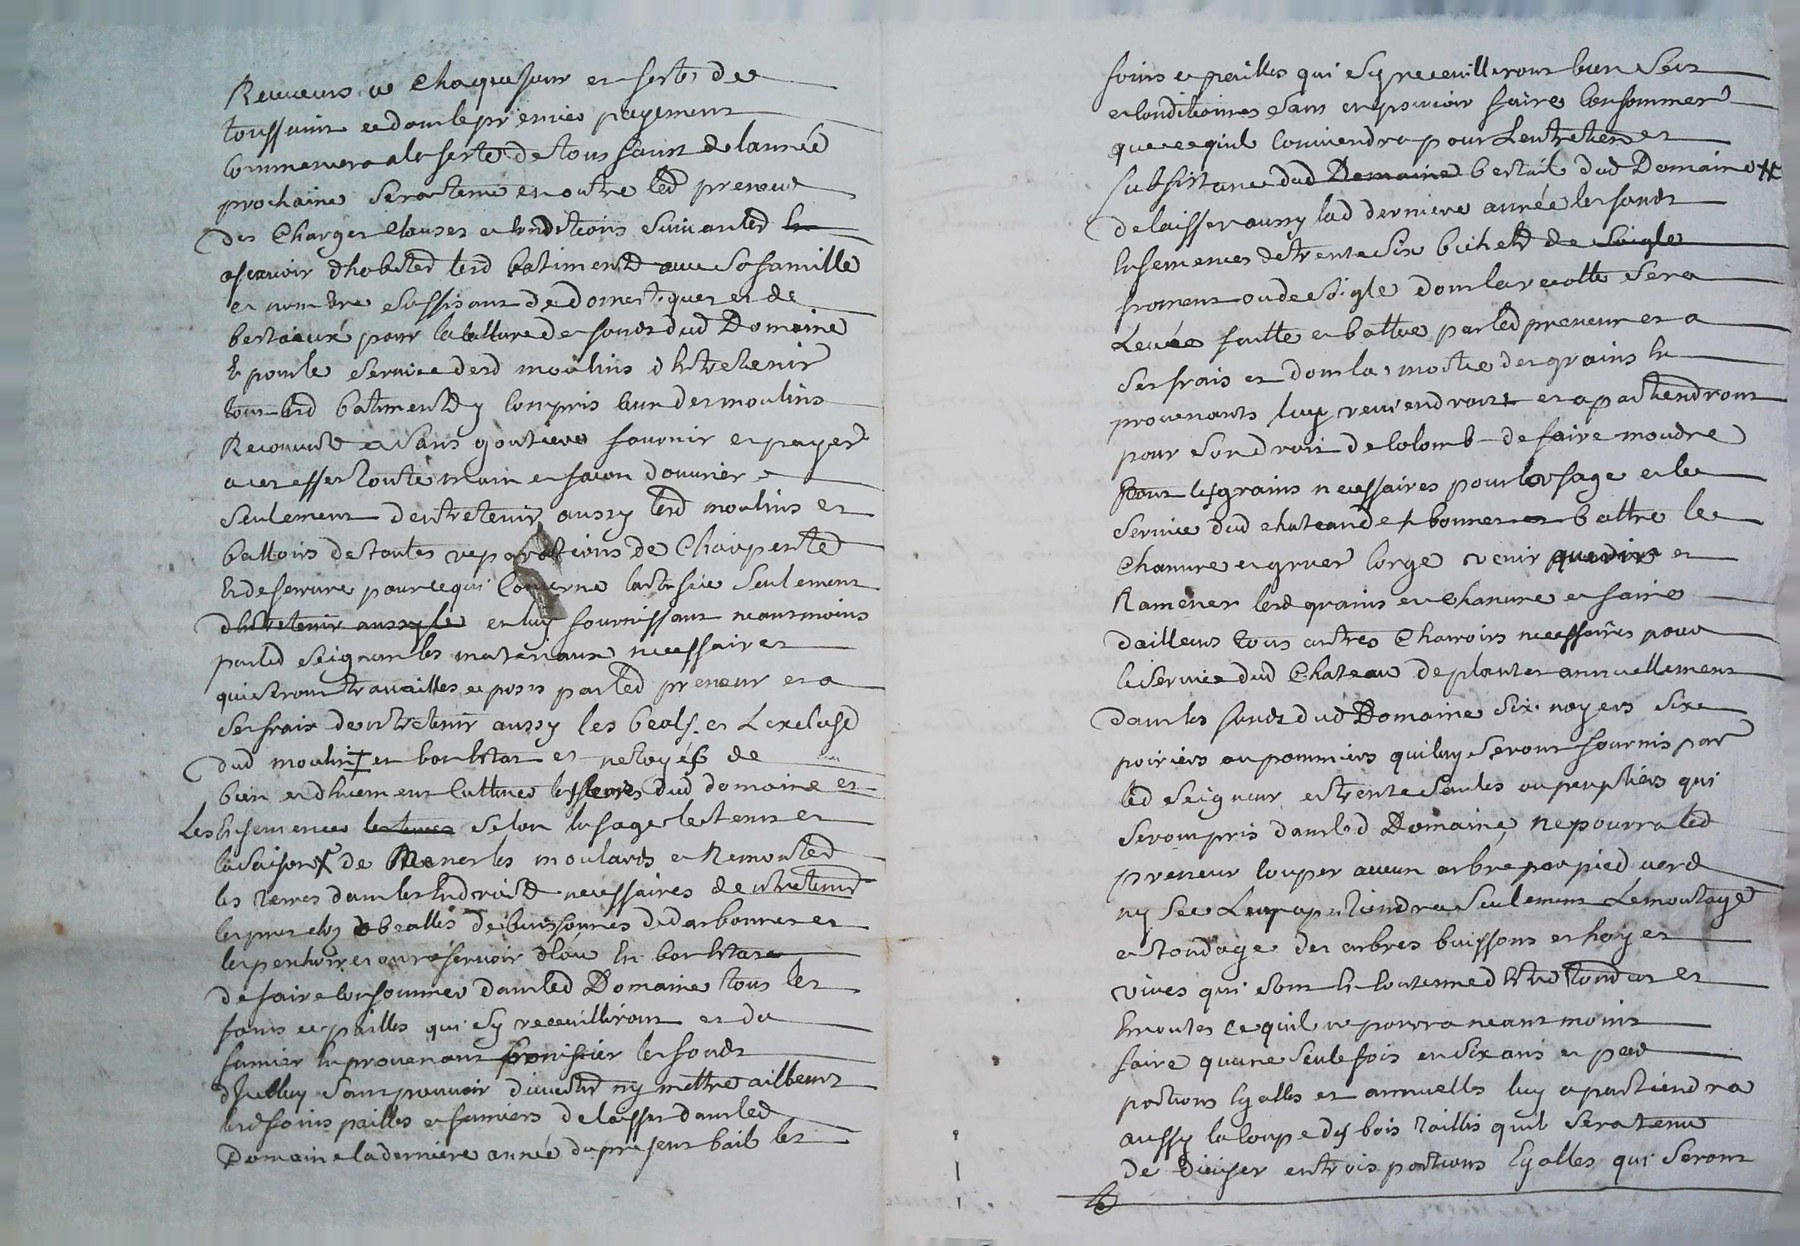 chaque jour et feste de
toussaint et dont le premier payement
commencera a la feste de tous saint de lannée
prochaine sera tenu en outre led preneur
des charges clauses et conditions suivantes
ascavoir dhabiter lesd batiments avec sa famille
et nombre suffisant de domestiques et de
bestiaux pour la culture des fonds dud Domaine
et pour le service desd moulins dentretenir
tous lesd batiments y compris lun des moulins
Recouvert et sans goutieres fournir et payer
a ces effets toute main et facon douvrier
seulement dentretenir aussy lesd moulins et
battoirs de toutes reparations de charpente
et de ferrure pour ce qui concerne seulement
dentretenir aussy le et luy fournissant neantmoins
par led seigneur les materiaux necessaires
qui seront travailles et posés par led preneur et a
ses frais dentretenir aussy les beals et Lexcluse
dud moulin en bon estat et netoyés de
bien et dhuement cultiver les dud domaine et
Les Ensemencer les terres selon lusage le tems et
la saison de Mener les moulards et Remonter
les terres dans les Endroits necessaires dentretenir
les prez clos de buissonnés et
les ou reservoir deau en bon Estat
de faire consommer dans led Domaine tous les
foins et pailles qui sy receuilliront et du
fumier en provenant les fonds
dycelluy sans pouvoir divertir ny mettre ailleurs
lesd foins pailles et fumiers de laisser dans led
Domaine la derniere année du present bail les
foins et pailles qui sy receuilliront bien secs
et conditionnes sans en pouvoir faire consommer
que ce quil conviendra pour Lentretien et
subsistance dud Domaine bestail dud Domaine
de laisser aussy lad derniere année les fonds
ensemences de trente six bichets de seigle
froment ou de seigle dont la recolte sera
Levée faitte et battue par led preneur et a
ses frais et dont la moitié des grains en
provenants luy reviendront et apartiendront
pour son droit de colomb de faire moudre
pour les grains necessaires pour lusage et le
service dud chateau de battre le
chanvre et gruer lorge venir querir et
Ramener lesd grains et chanvre et faire
dailleurs tous autres charrois necessaires pour
le service dud Chateau de planter annuellement
dans les fonds dud Domaine six noyers six
poiriers ou pommiers qui luy seront fournis par
led seigneur et trente saules ou peupliers qui
seront pris dans led Domaine ne pourra led
preneur couper aucun arbre par pied verd
ny sec Luy apartiendra seulement Lemoutage
et tondage des arbres buissons et hayes
vives qui sont en coutume destre tondus et
Emoutes ce quil ne pourra neant moins
faire quune seule fois en six ans et par
portions Egalles et annuelles luy apartiendra
aussy la coupe des bois taillis quil sera tenu
de diviser en trois portions Egalles qui seront